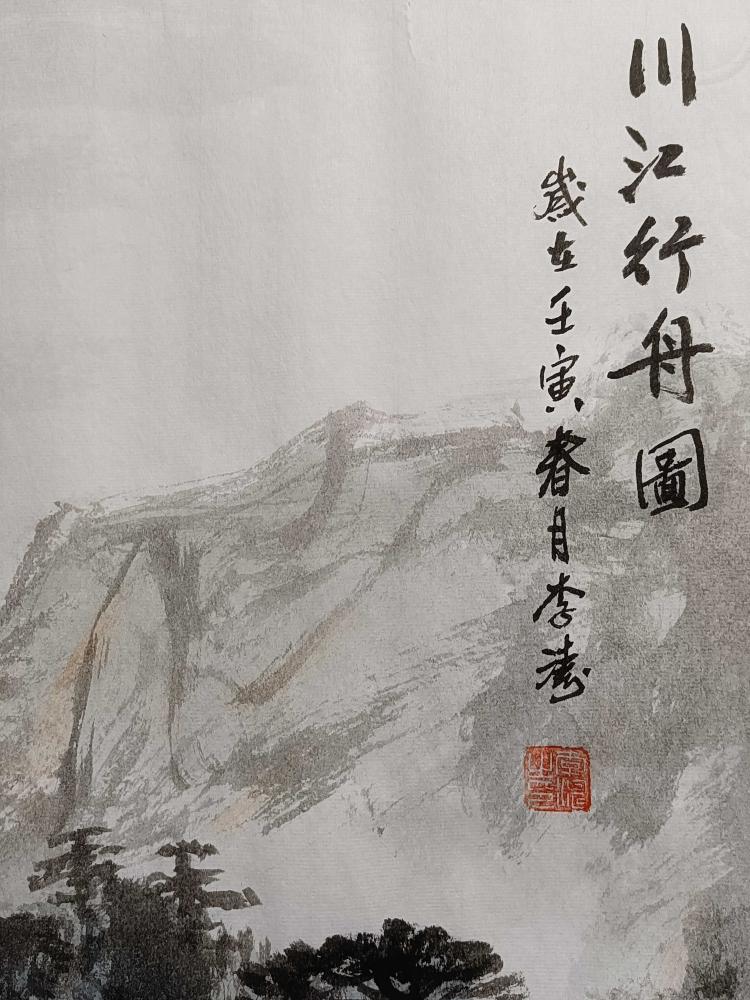 川江行舟圖
歲在壬寅春月李濤